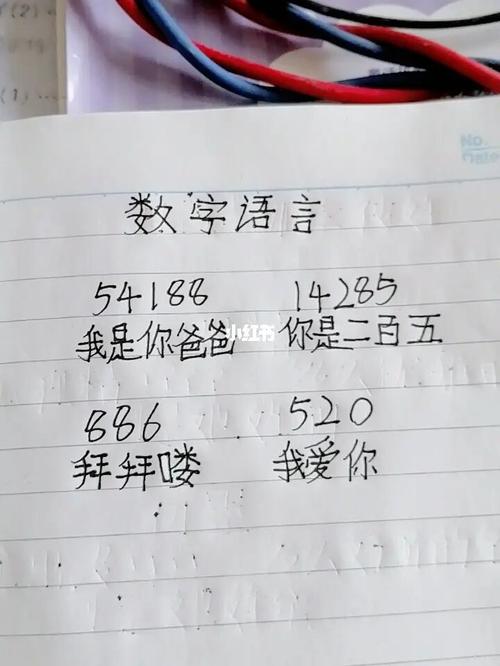 数字语言
54188 14285
我是你爸爸 你是二百五
886 520
拜拜喽 我爱你
小红书